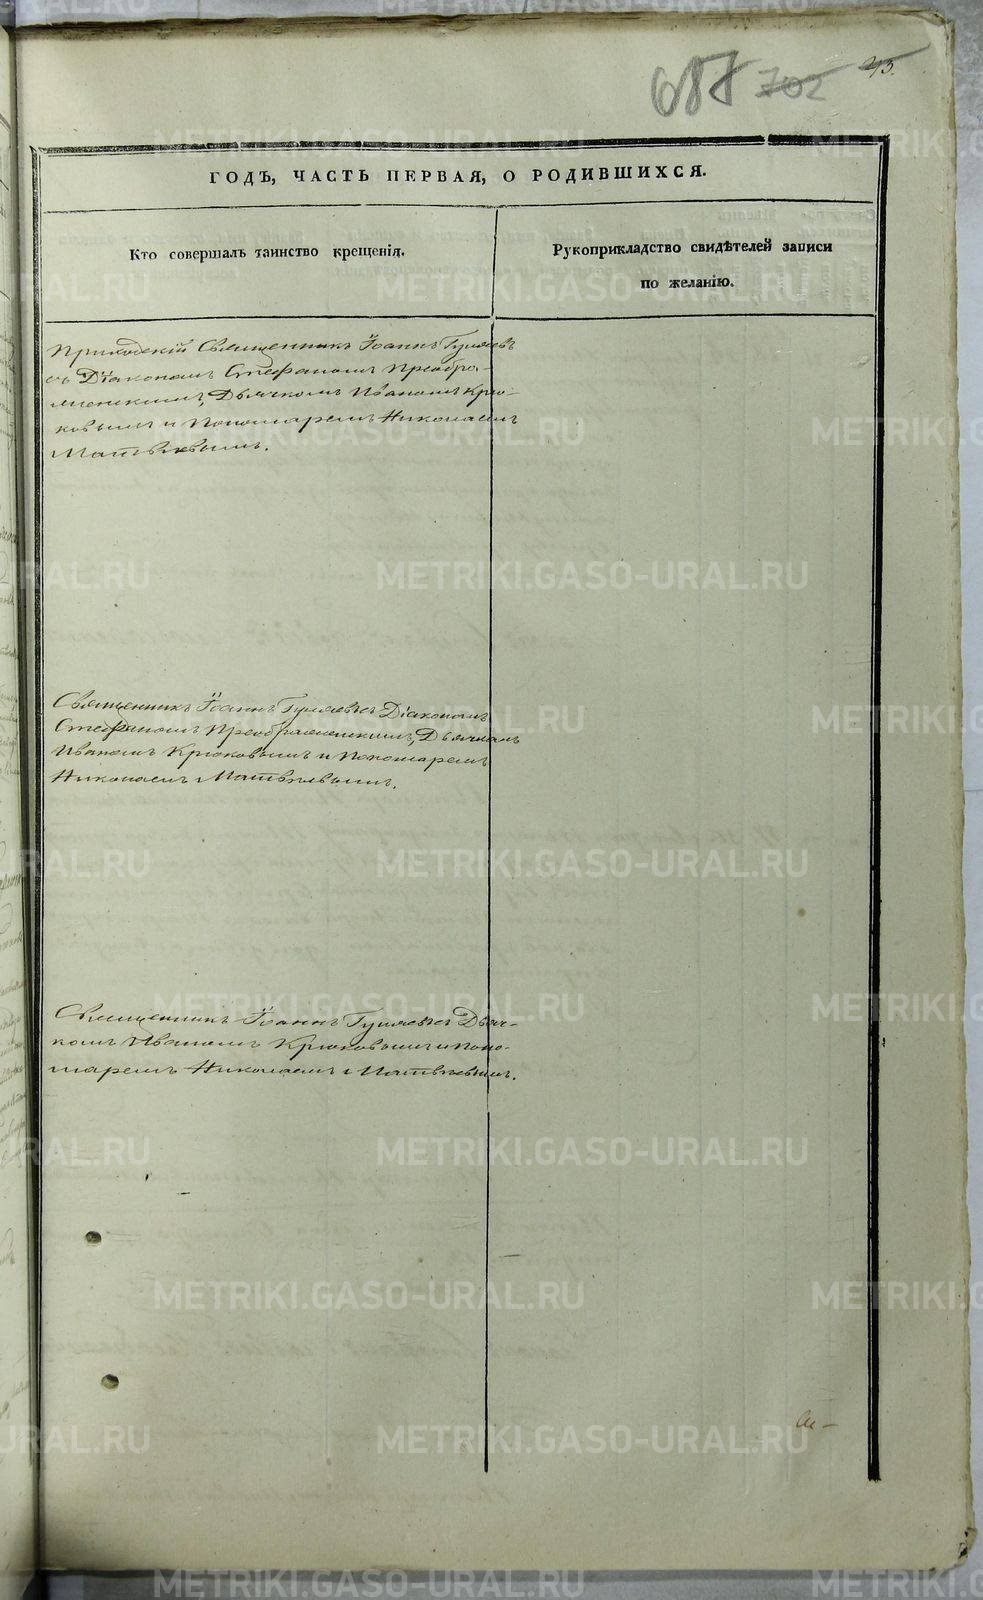 688 702 43.
ГОДЪ, ЧАСТЬ ПЕРВАЯ, О РОДИВШИХСЯ.
Кто совершалъ таинство крещенія.
Рукоприкладство свидѣтелей записи
по желанію.
Приходскій Священникъ Іоаннъ Гуляевъ
съ Діакономъ Стефаномъ Преобра-
женскимъ, Дьячкомъ Иваномъ Крю-
ковымъ и Пономаремъ Николаемъ
Матвѣевымъ.
Священникъ Іоаннъ Гуляевъ съ Діакономъ
Стефаномъ Преображенскимъ, Дьячкомъ
Иваномъ Крюковымъ и Пономаремъ
Николаемъ Матвѣевымъ.
Священникъ Іоаннъ Гуляевъ съ Дьяч-
комъ Иваномъ Крюковымъ и Поно-
маремъ Николаемъ Матвѣевымъ.
METRIKI.GASO-URAL.RU